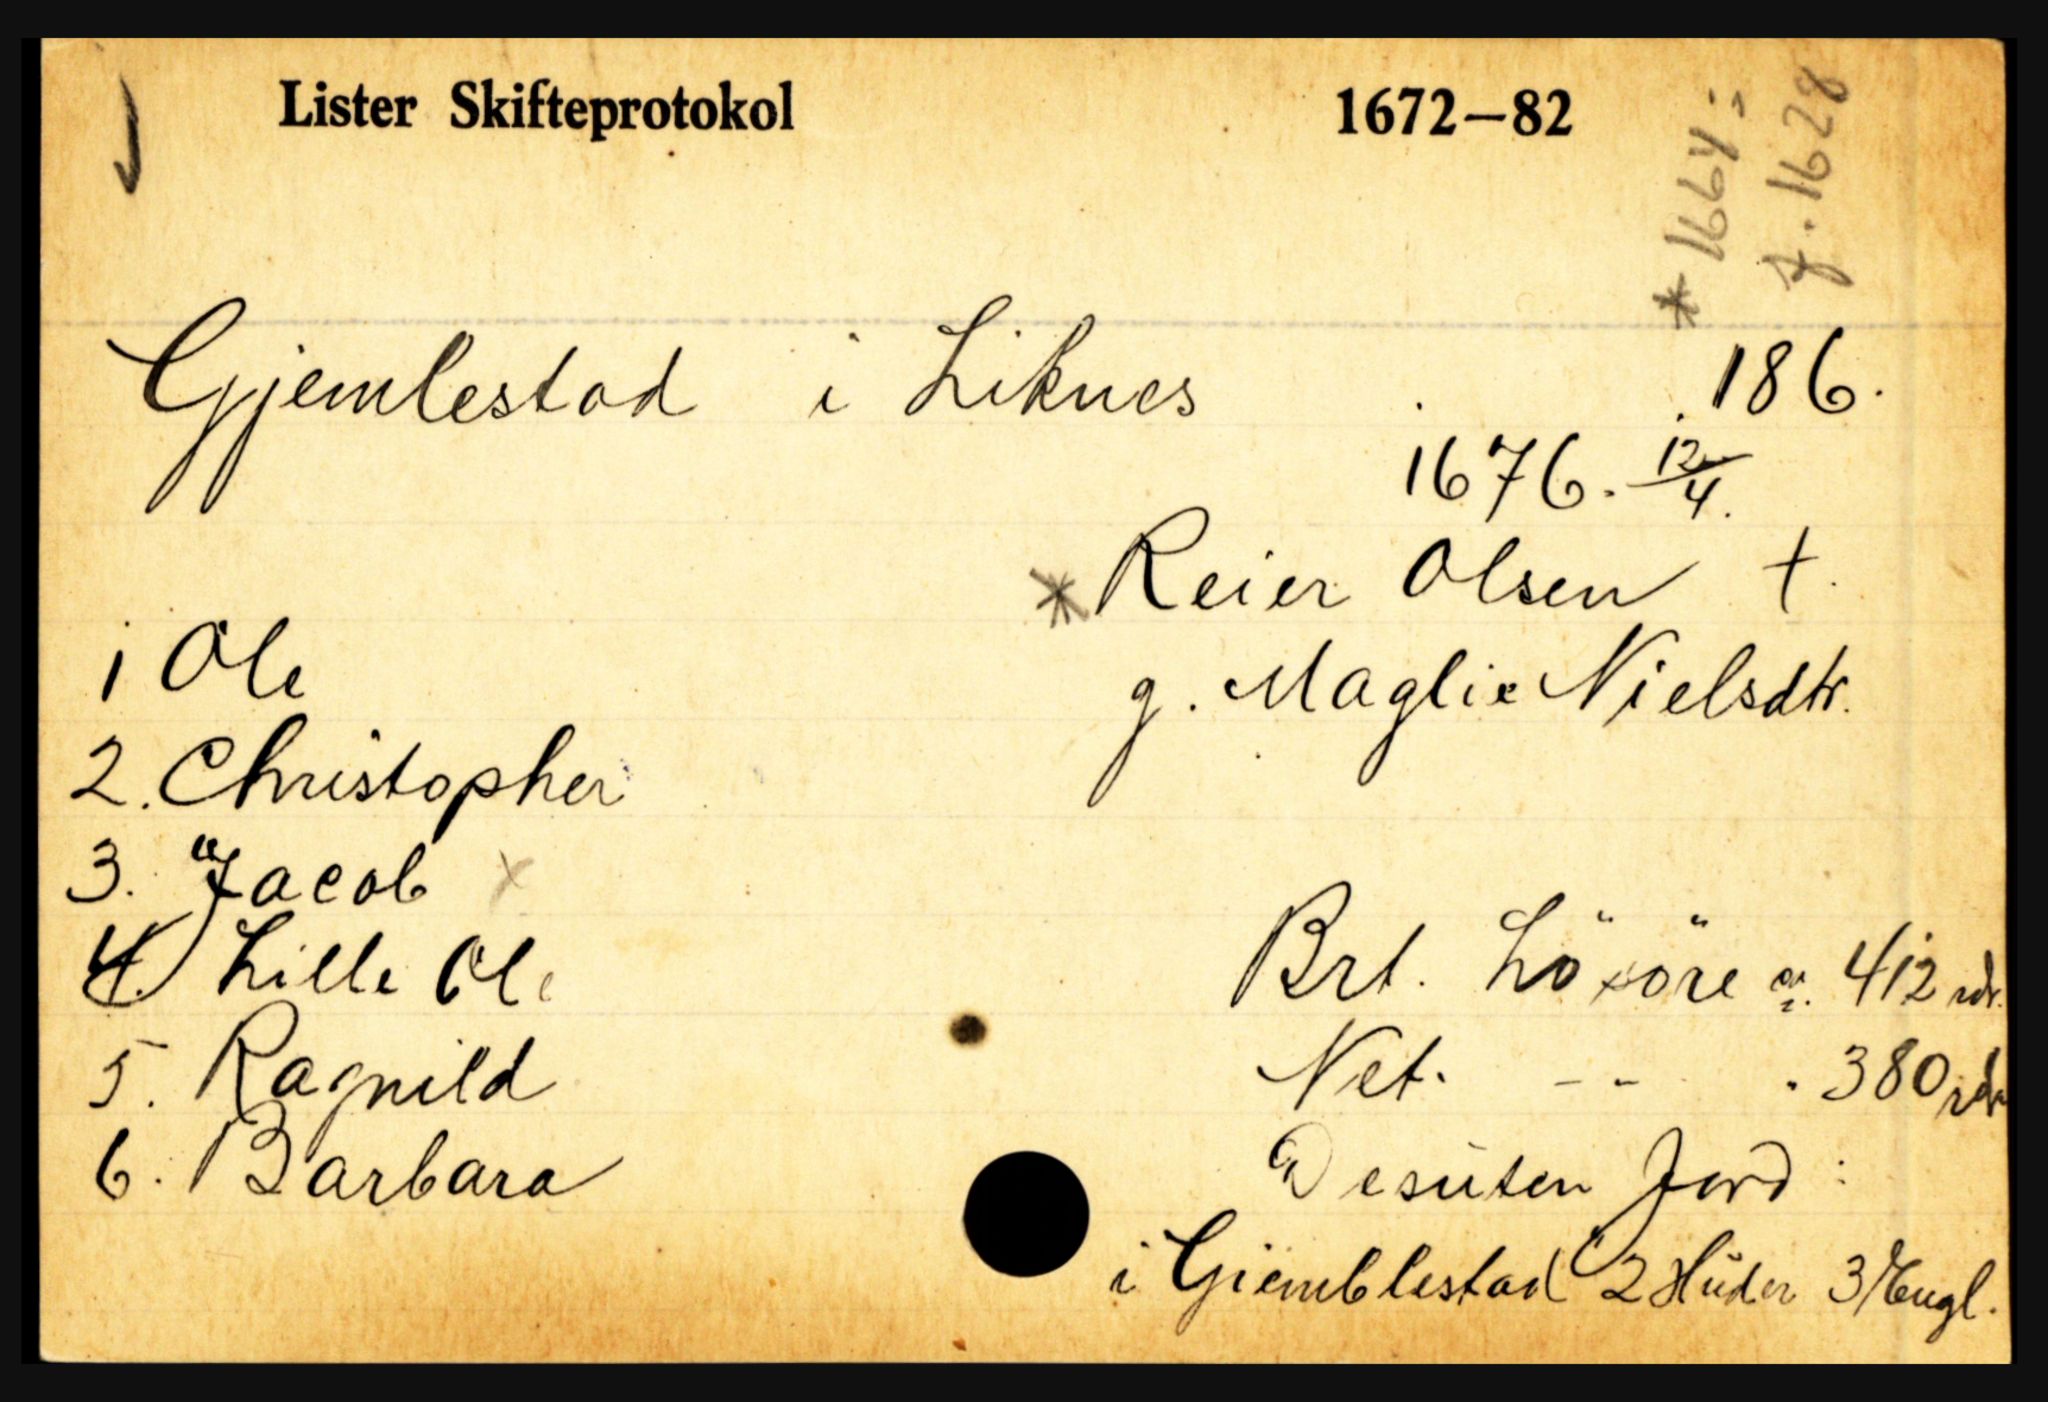 Lister Skifteprotokol 1672—82
* 1664:
f. 1628
Gjemlestad i Liknes 186.
1676. 12/4.
* Reier Olsen †.
g. Maglie Nielsdtr.
1 Ole
2. Christopher
3. Jacob x
4. Lille Ole
5. Ragnild
6. Barbara
Brt. Lösöre 412 rdr.
Net. -- . 380 rdr
Desuten Jord:
i Giemblestad 2 Huder 3 Engl.